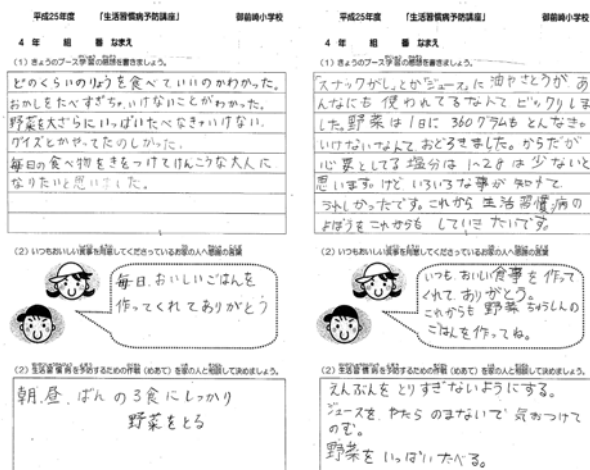 平成25年度 「生活習慣病予防講座」 御前崎小学校
4 年 組 番 なまえ
(1) きょうのブース学習の感想を書きましょう。
どのくらいのりょうを食べていいのかわかった。
おかしをたべすぎちゃいけないことがわかった。
野菜を大ざらにいっぱいたべなきゃいけない
クイズとかやってたのしかった。
毎日の食べ物をきをつけてけんこうな大人に
なりたいと思いました。
(2) いつもおいしい食事を用意してくださっているお家の人へ感謝の言葉
毎日、おいしいごはんを
作ってくれてありがとう
(2) 生活習慣病を予防するための作戦(めあて)を家の人と相談して決めましょう。
朝、昼、ばんの3食にしっかり
野菜をとる
平成25年度 「生活習慣病予防講座」 御前崎小学校
4 年 組 番 なまえ
(1) きょうのブース学習の感想を書きましょう。
「スナックがし」とか「ジュース」に油やさとうがあ
んなにも使われてるなんてビックリしま
した。野菜は1日に360グラムもとんなき。
いけないなんておどろきました。からだが
心要としてる塩分は1~2gは少ないと
思います。けどいろいろな事が知れて
うれしかったです。これから生活習慣病の
よぼうをこれからもしていきたいです。
(2) いつもおいしい食事を用意してくださっているお家の人へ感謝の言葉
いつも、おいしい食事を作って
くれてありがとう。
これからも野菜ちゅうしんの
ごはんを作ってね。
(2) 生活習慣病を予防するための作戦(めあて)を家の人と相談して決めましょう。
えんぶんをとりすぎないようにする。
ジュースをやたらのまないで気おつけて
のむ。
野菜をいっぱいたべる。